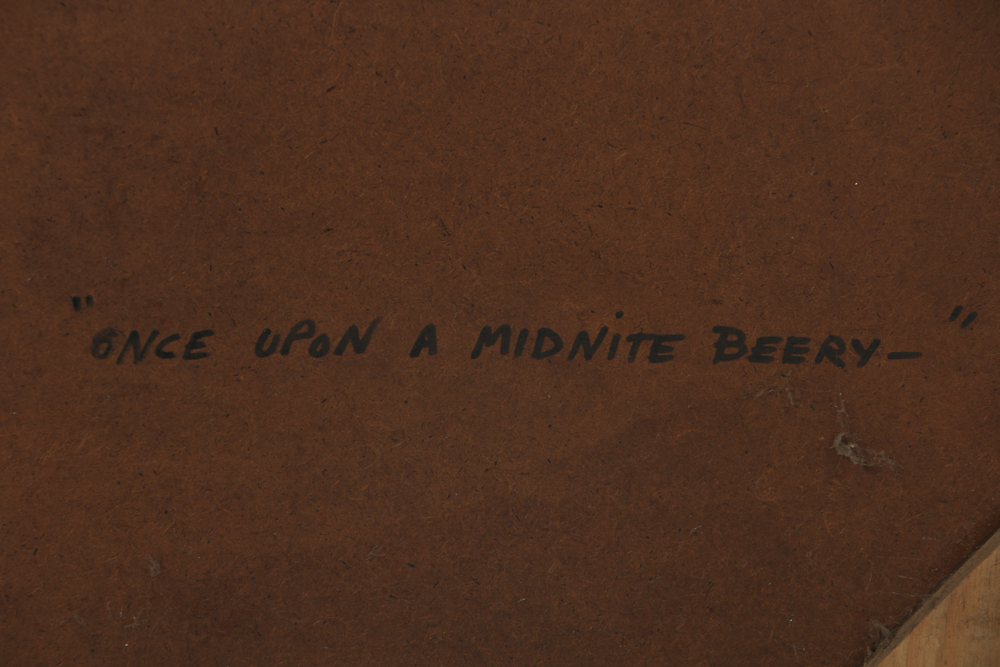 "ONCE UPON A MIDNiTE BEERY—"